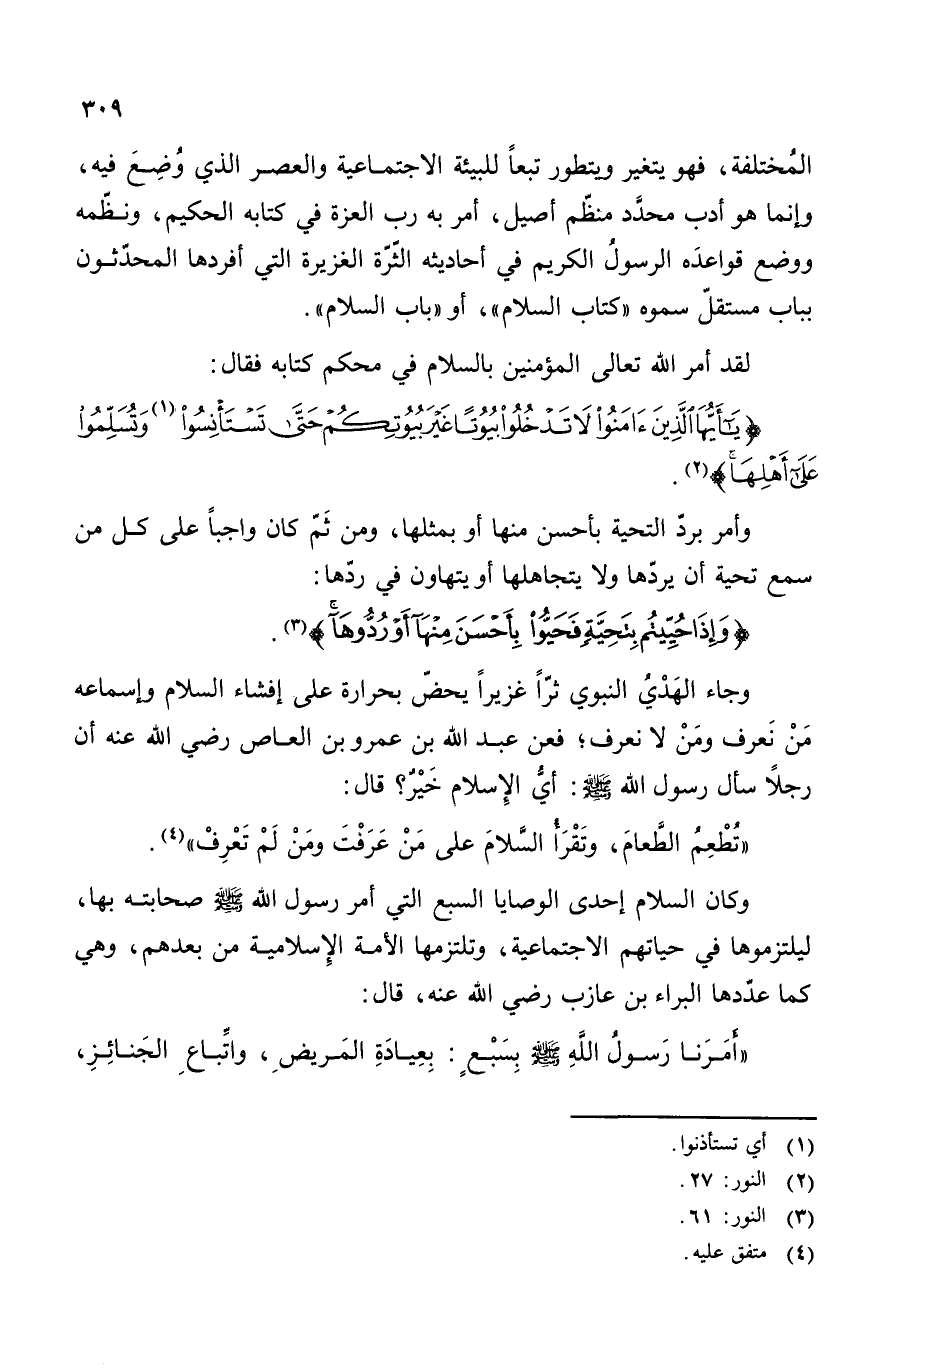 ٣٠٩
المُختلفة، فهو يتغير ويتطور تبعاً للبيئة الاجتماعية والعصر الذي وُضِعَ فيه،
وإنما هو أدب محدَّد منظّم أصيل، أمر به رب العزة في كتابه الحكيم، ونظّمه
ووضع قواعدَه الرسولُ الكريم في أحاديثه الثّرّة الغزيرة التي أفردها المحدّثون
بباب مستقلّ سموه «كتاب السلام»، أو «باب السلام».
لقد أمر الله تعالى المؤمنين بالسلام في محكم كتابه فقال:
﴿يَٰٓأَيُّهَا ٱلَّذِينَ ءَامَنُوا۟ لَا تَدۡخُلُوا۟ بُيُوتًا غَيۡرَ بُيُوتِكُمۡ حَتَّىٰ تَسۡتَأۡنِسُوا۟(١) وَتُسَلِّمُوا۟
عَلَىٰٓ أَهۡلِهَاۚ﴾(٢).
وأمر بردّ التحية بأحسن منها أو بمثلها، ومن ثَمّ كان واجباً على كل من
سمع تحية أن يردّها ولا يتجاهلها أو يتهاون في ردّها:
﴿وَإِذَا حُيِّيتُم بِتَحِيَّةٖ فَحَيُّوا۟ بِأَحۡسَنَ مِنۡهَآ أَوۡ رُدُّوهَآۚ﴾(٣).
وجاء الهَدْيُ النبوي ثرّاً غزيراً يحضّ بحرارة على إفشاء السلام وإسماعه
مَنْ نَعرف ومَنْ لا نعرف؛ فعن عبد الله بن عمرو بن العاص رضي الله عنه أن
رجلاً سأل رسول الله ﷺ: أيُّ الإسلام خَيْرٌ؟ قال:
«تُطْعِمُ الطَّعامَ، وتَقْرَأُ السَّلامَ على مَنْ عَرَفْتَ ومَنْ لَمْ تَعْرِفْ»(٤).
وكان السلام إحدى الوصايا السبع التي أمر رسول الله ﷺ صحابته بها،
ليلتزموها في حياتهم الاجتماعية، وتلتزمها الأمة الإسلامية من بعدهم، وهي
كما عدّدها البراء بن عازب رضي الله عنه، قال:
«أَمَرَنا رَسولُ اللَّهِ ﷺ بِسَبْعٍ: بِعِيادَةِ المَريضِ، واتِّباعِ الجَنائِزِ،
(١) أي تستأذنوا.
(٢) النور: ٢٧.
(٣) النور: ٦١.
(٤) متفق عليه.